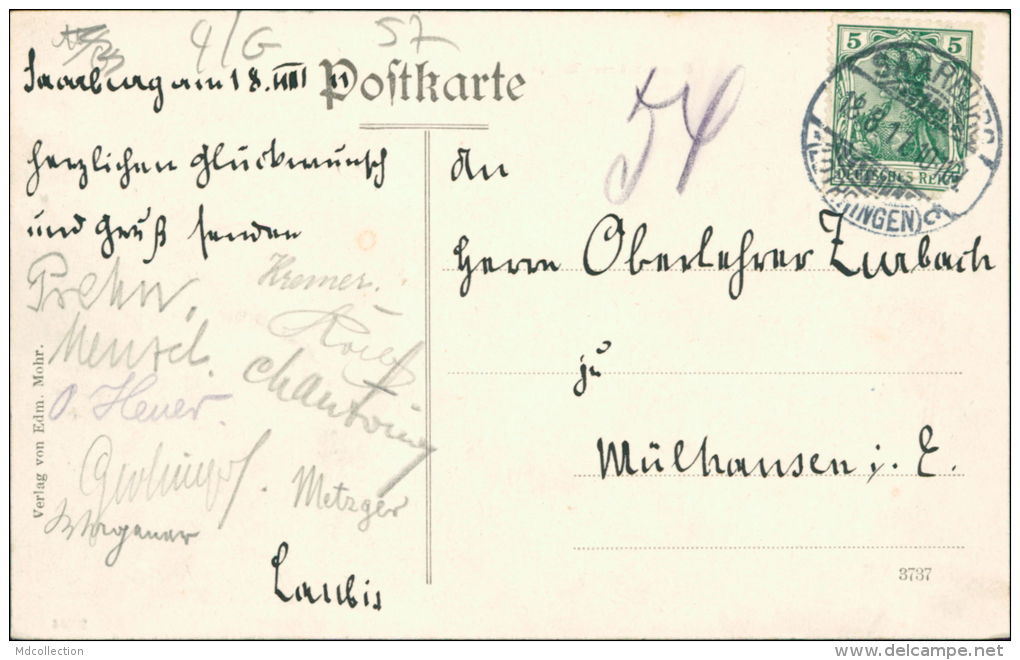 4/G 57
Saarburg am 18. VIII 11
Postkarte
54
5 5
DEUTSCHES REICH
SAARBURG
(LOTHRINGEN)
herzlichen Glückwunsch
und Gruß senden
An
Herrn Oberlehrer Zurbach
zu
Mülhausen i. E.
Prehn.
Kremer.
Mensel.
O. Heuer.
Metzger
Wegener
Laubis
Verlag von Edm. Mohr.
3737
Mdcollection
www.delcampe.net